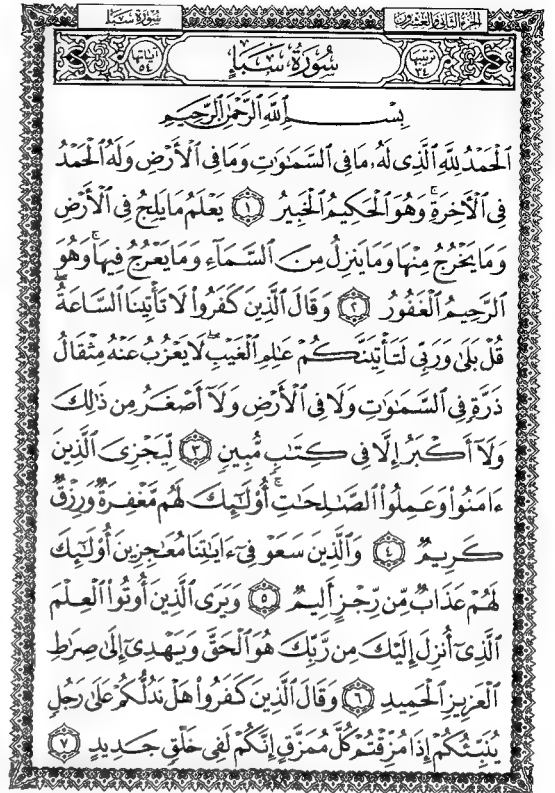 سُورَةُ سَبَإٍ
الجزء الثاني والعشرون
ترتيبها ٣٤
سُورَةُ سَبَإٍ
آياتها ٥٤
بِسْمِ اللَّهِ الرَّحْمَٰنِ الرَّحِيمِ
الْحَمْدُ لِلَّهِ الَّذِى لَهُۥ مَا فِى السَّمَٰوَٰتِ وَمَا فِى الْأَرْضِ وَلَهُ الْحَمْدُ
فِى الْأَخِرَةِ ۚ وَهُوَ الْحَكِيمُ الْخَبِيرُ ١ يَعْلَمُ مَا يَلِجُ فِى الْأَرْضِ
وَمَا يَخْرُجُ مِنْهَا وَمَا يَنزِلُ مِنَ السَّمَآءِ وَمَا يَعْرُجُ فِيهَا ۚ وَهُوَ
الرَّحِيمُ الْغَفُورُ ٢ وَقَالَ الَّذِينَ كَفَرُوا۟ لَا تَأْتِينَا السَّاعَةُ ۖ
قُلْ بَلَىٰ وَرَبِّى لَتَأْتِيَنَّكُمْ عَٰلِمِ الْغَيْبِ ۖ لَا يَعْزُبُ عَنْهُ مِثْقَالُ
ذَرَّةٍ فِى السَّمَٰوَٰتِ وَلَا فِى الْأَرْضِ وَلَآ أَصْغَرُ مِن ذَٰلِكَ
وَلَآ أَكْبَرُ إِلَّا فِى كِتَٰبٍ مُّبِينٍ ٣ لِّيَجْزِىَ الَّذِينَ
ءَامَنُوا۟ وَعَمِلُوا۟ الصَّٰلِحَٰتِ ۚ أُو۟لَٰٓئِكَ لَهُم مَّغْفِرَةٌ وَرِزْقٌ
كَرِيمٌ ٤ وَالَّذِينَ سَعَوْ فِىٓ ءَايَٰتِنَا مُعَٰجِزِينَ أُو۟لَٰٓئِكَ
لَهُمْ عَذَابٌ مِّن رِّجْزٍ أَلِيمٌ ٥ وَيَرَى الَّذِينَ أُوتُوا۟ الْعِلْمَ
الَّذِىٓ أُنزِلَ إِلَيْكَ مِن رَّبِّكَ هُوَ الْحَقَّ وَيَهْدِىٓ إِلَىٰ صِرَٰطِ
الْعَزِيزِ الْحَمِيدِ ٦ وَقَالَ الَّذِينَ كَفَرُوا۟ هَلْ نَدُلُّكُمْ عَلَىٰ رَجُلٍ
يُنَبِّئُكُمْ إِذَا مُزِّقْتُمْ كُلَّ مُمَزَّقٍ إِنَّكُمْ لَفِى خَلْقٍ جَدِيدٍ ٧